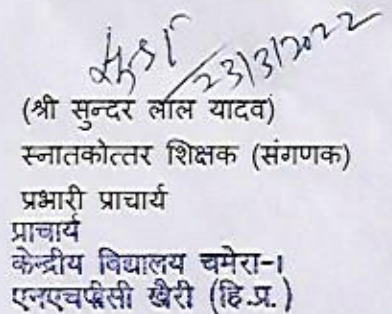 23/3/2022
(श्री सुन्दर लाल यादव)
स्नातकोत्तर शिक्षक (संगणक)
प्रभारी प्राचार्य
प्राचार्य
केन्द्रीय विद्यालय चमेरा-।
एनएचपीसी खैरी (हि.प्र.)